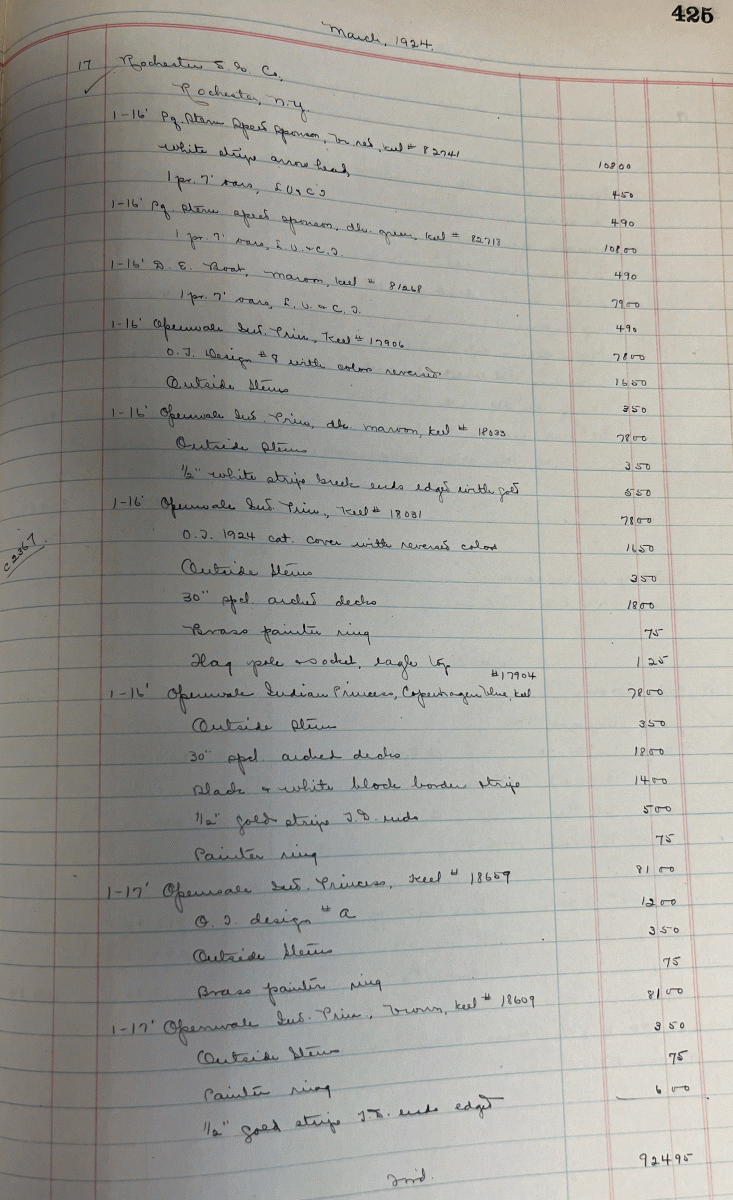 425
March, 1924.
17 Rochester S. G. Co.,
Rochester, N.Y.
1-16' Pq. Stern Speed Sponson, Vr. red, keel # 82741 10800
white stripe arrow head, 450
1 pr. 7' oars, L.U. & C.T. 490
1-16' Pq. Stern speed sponson, dk. green, keel # 82718 10800
1 pr. 7' oars, L.U. & C.T. 490
1-16' D. E. Boat, maroon, keel # 81268 7900
1 pr. 7' oars, L. U. & C. T. 490
1-16' Openwale Ind. Prin., Keel # 17906 7800
O.T. Design # 9 with colors reversed 1650
Outside Stems 350
1-16' Openwale Ind. Prin., dk. maroon, keel # 18033 7800
Outside Stems 350
1/2" white stripe break ends edged with gold 550
1-16' Openwale Ind. Prin., Keel # 18031 7800
C2367
O.T. 1924 cat. cover with reversed colors 1650
Outside Stems 350
30" spcl. arched decks 1800
Brass painter ring 75
Flag pole & socket, eagle top 125
#17904
1-16' Openwale Indian Princess, Copenhagen blue, keel 7800
Outside Stems 350
30" spcl. arched decks 1800
Black & white block border stripe 1400
1/2" gold stripe T.D. ends 500
Painter ring 75
1-17' Openwale Ind. Princess, Keel # 18659 8100
O. T. design # a 1200
Outside Stems 350
Brass painter ring 75
1-17' Openwale Ind. Prin., brown, keel # 18609 8100
Outside Stems 350
Painter ring 75
1/2" gold stripe T.D. ends edged 600
92495